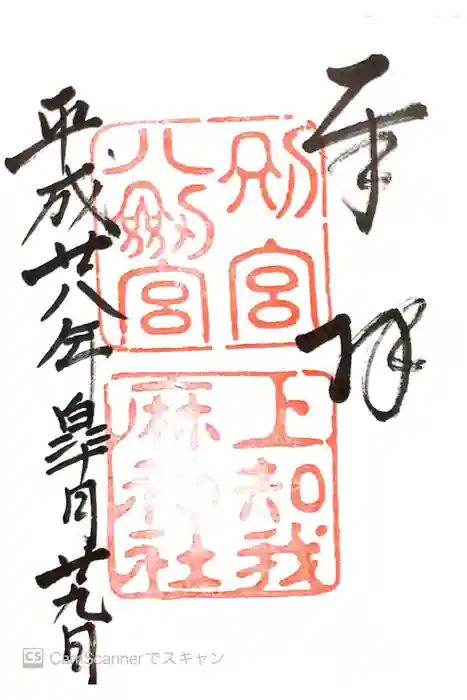 奉拝
別宮
八劍宮
上知我
麻神社
平成廿八年皐月廿九日
CS CamScannerでスキャン